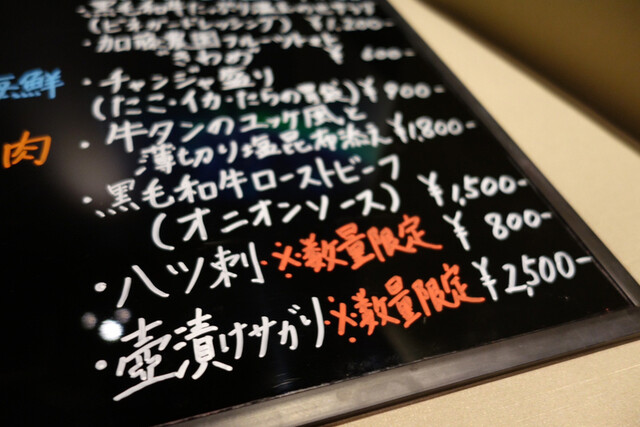 黒毛和牛
(ビネガードレッシング) ¥1,200-
・加藤農園フルーツトマト
¥600-
海鮮 ・チャンジャ盛り
(たこ・イカ・たらの胃袋) ¥900-
肉 ・牛タンのユッケ風と
薄切り塩昆布添え ¥1,800-
・黒毛和牛ローストビーフ
(オニオンソース) ¥1,500-
・ハツ刺 ※数量限定 ¥800-
・壺漬けサガリ ※数量限定 ¥2,500-